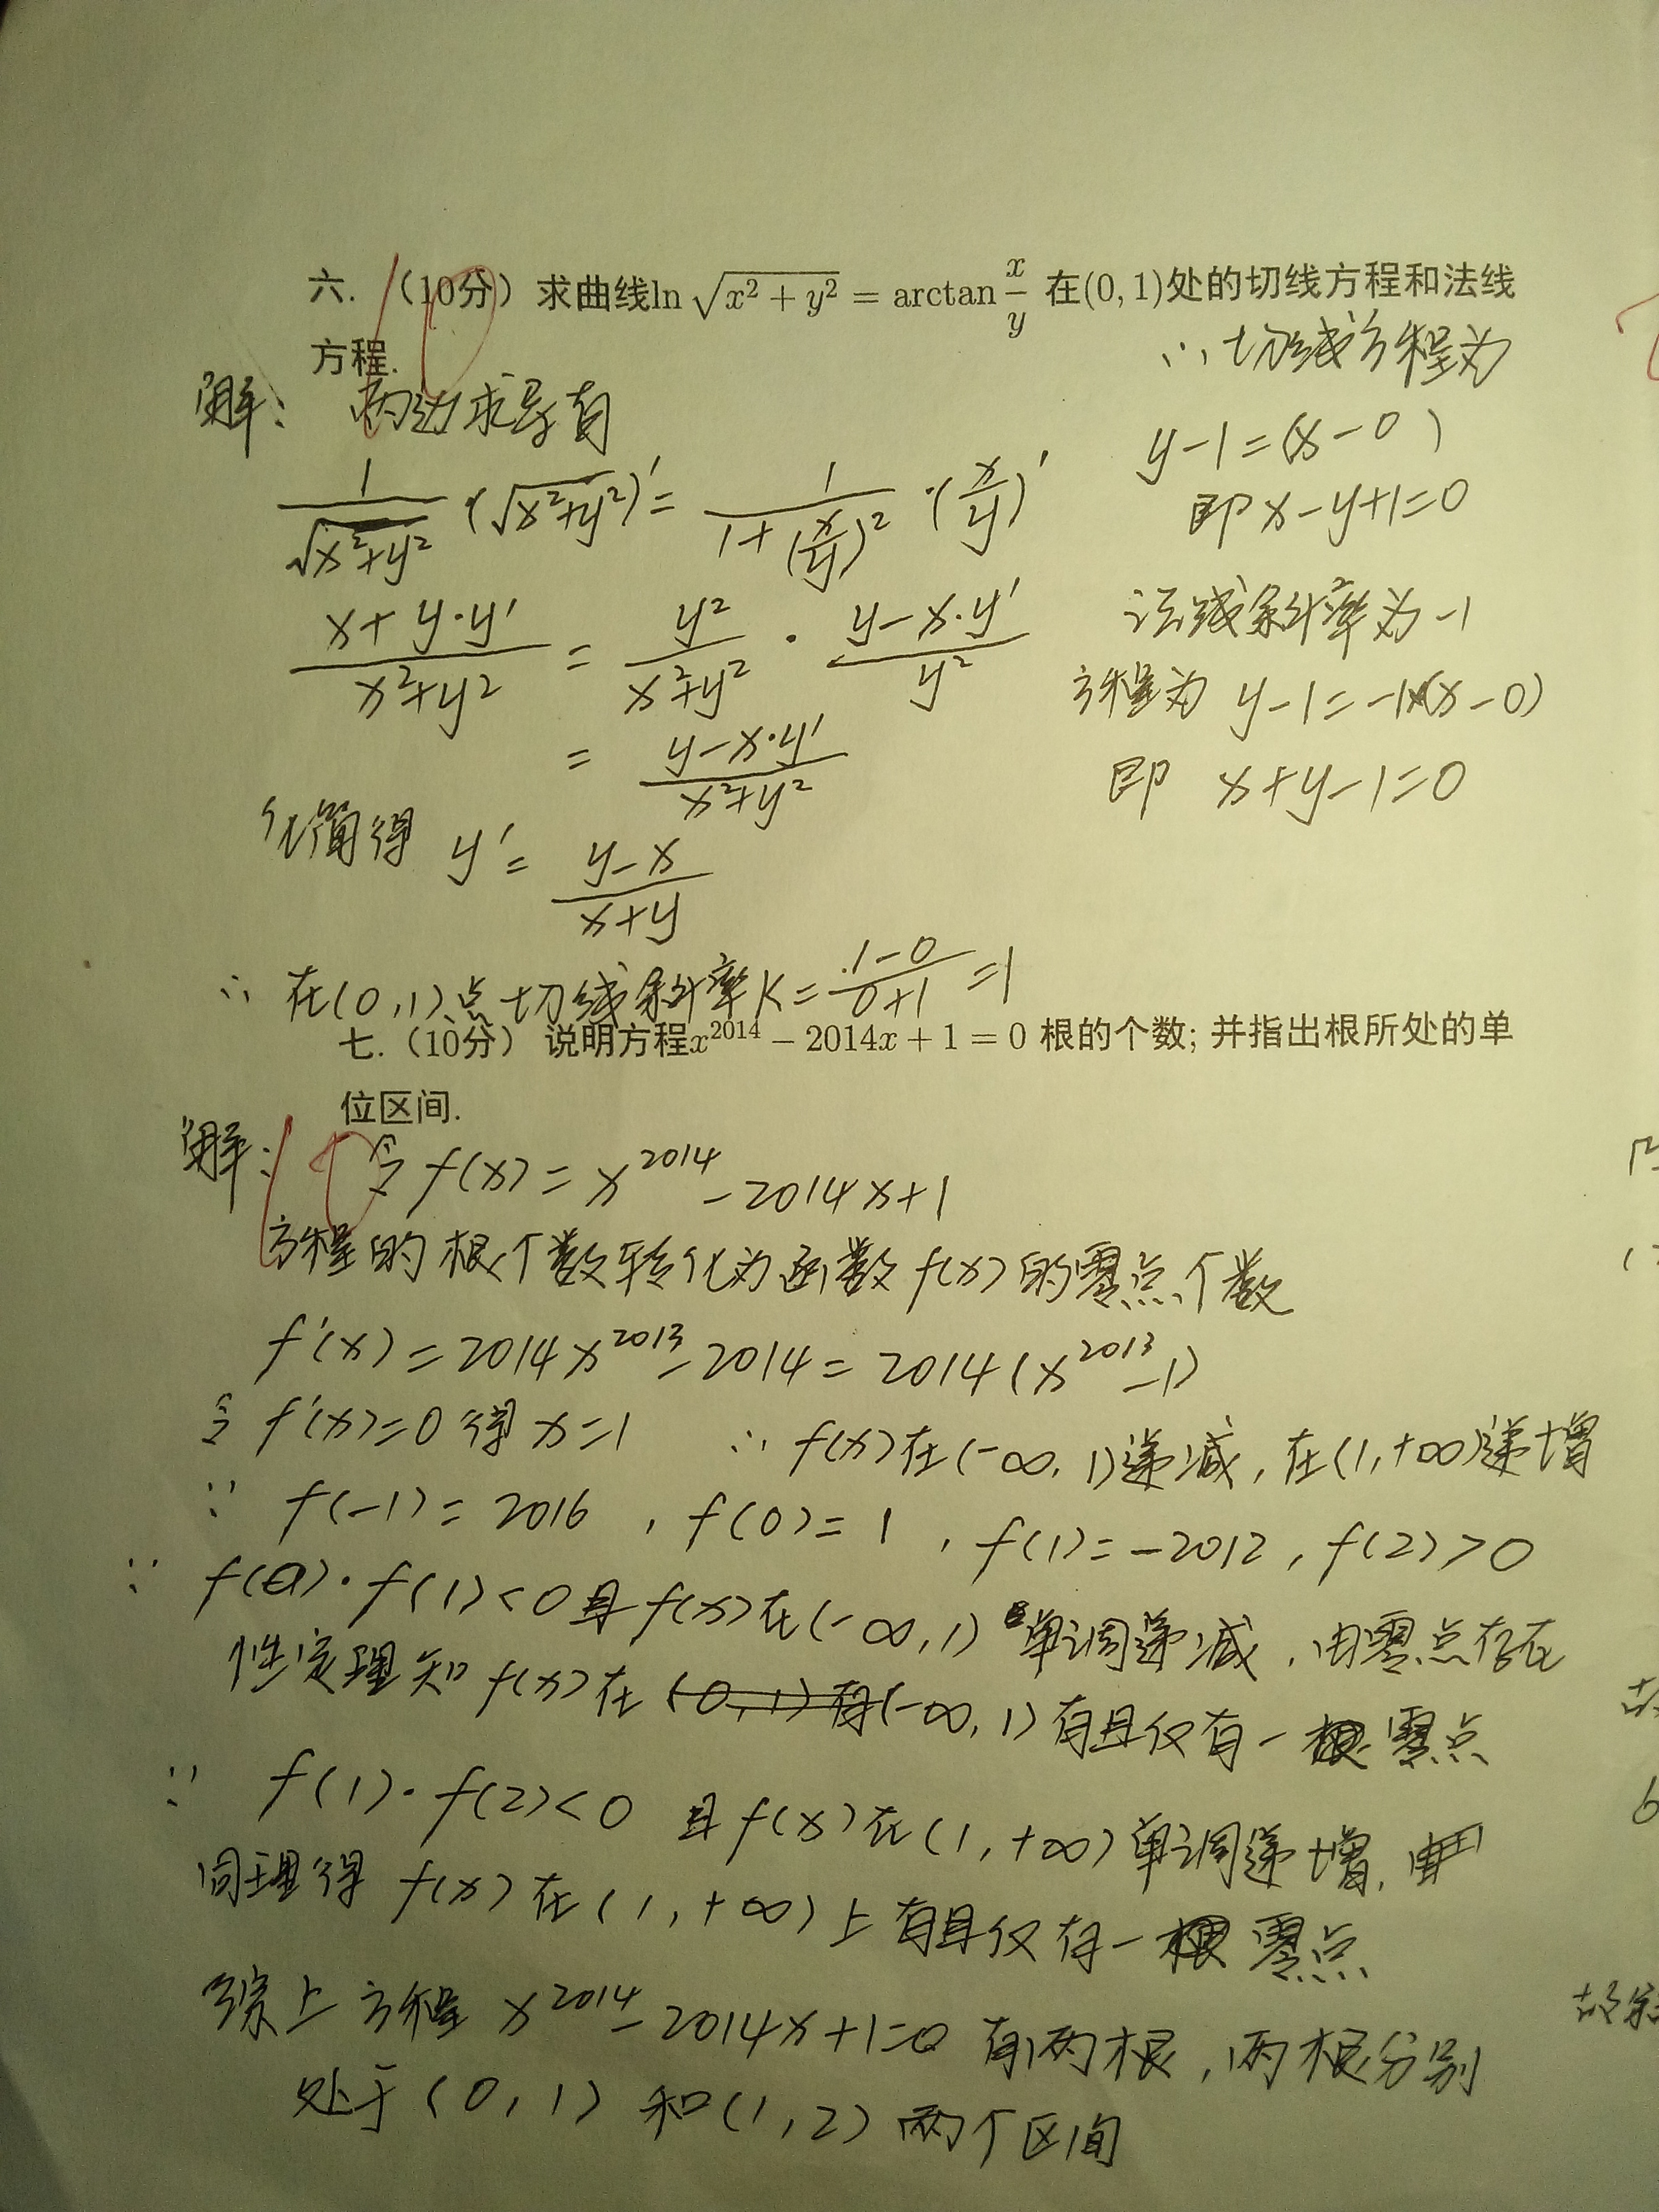 六. (10分) 求曲线ln √(x²+y²) = arctan x/y 在(0, 1)处的切线方程和法线
方程.
10
解: 两边求导有
1/√(x²+y²) ·(√(x²+y²))' = 1/(1+(x/y)²) ·(x/y)'
(x+y·y')/(x²+y²) = y²/(x²+y²) · (y-x·y')/y²
= (y-x·y')/(x²+y²)
化简得 y' = (y-x)/(x+y)
∴ 在(0,1)点切线斜率K = (1-0)/(0+1) = 1
∴ 切线方程为
y-1=(x-0)
即 x-y+1=0
法线斜率为-1
方程为 y-1=-1×(x-0)
即 x+y-1=0
七. (10分) 说明方程x²⁰¹⁴ − 2014x + 1 = 0 根的个数; 并指出根所处的单
位区间.
10
解: 令 f(x) = x²⁰¹⁴-2014x+1
方程的根个数转化为函数f(x)的零点个数
f'(x) = 2014x²⁰¹³-2014 = 2014(x²⁰¹³-1)
令 f'(x)=0 得 x=1 ∴ f(x)在(-∞,1)递减,在(1,+∞)递增
∵ f(-1)=2016 , f(0)=1 , f(1)=-2012, f(2)>0
∵ f(0)·f(1)<0且f(x)在(-∞,1)单调递减,由零点存在
性定理知 f(x)在(0,1)有(-∞,1)有且仅有一零点
∵ f(1)·f(2)<0 且f(x)在(1,+∞)单调递增,
同理得 f(x)在(1,+∞)上有且仅有一零点
综上方程 x²⁰¹⁴-2014x+1=0 有两根,两根分别
处于(0,1)和(1,2)两个区间